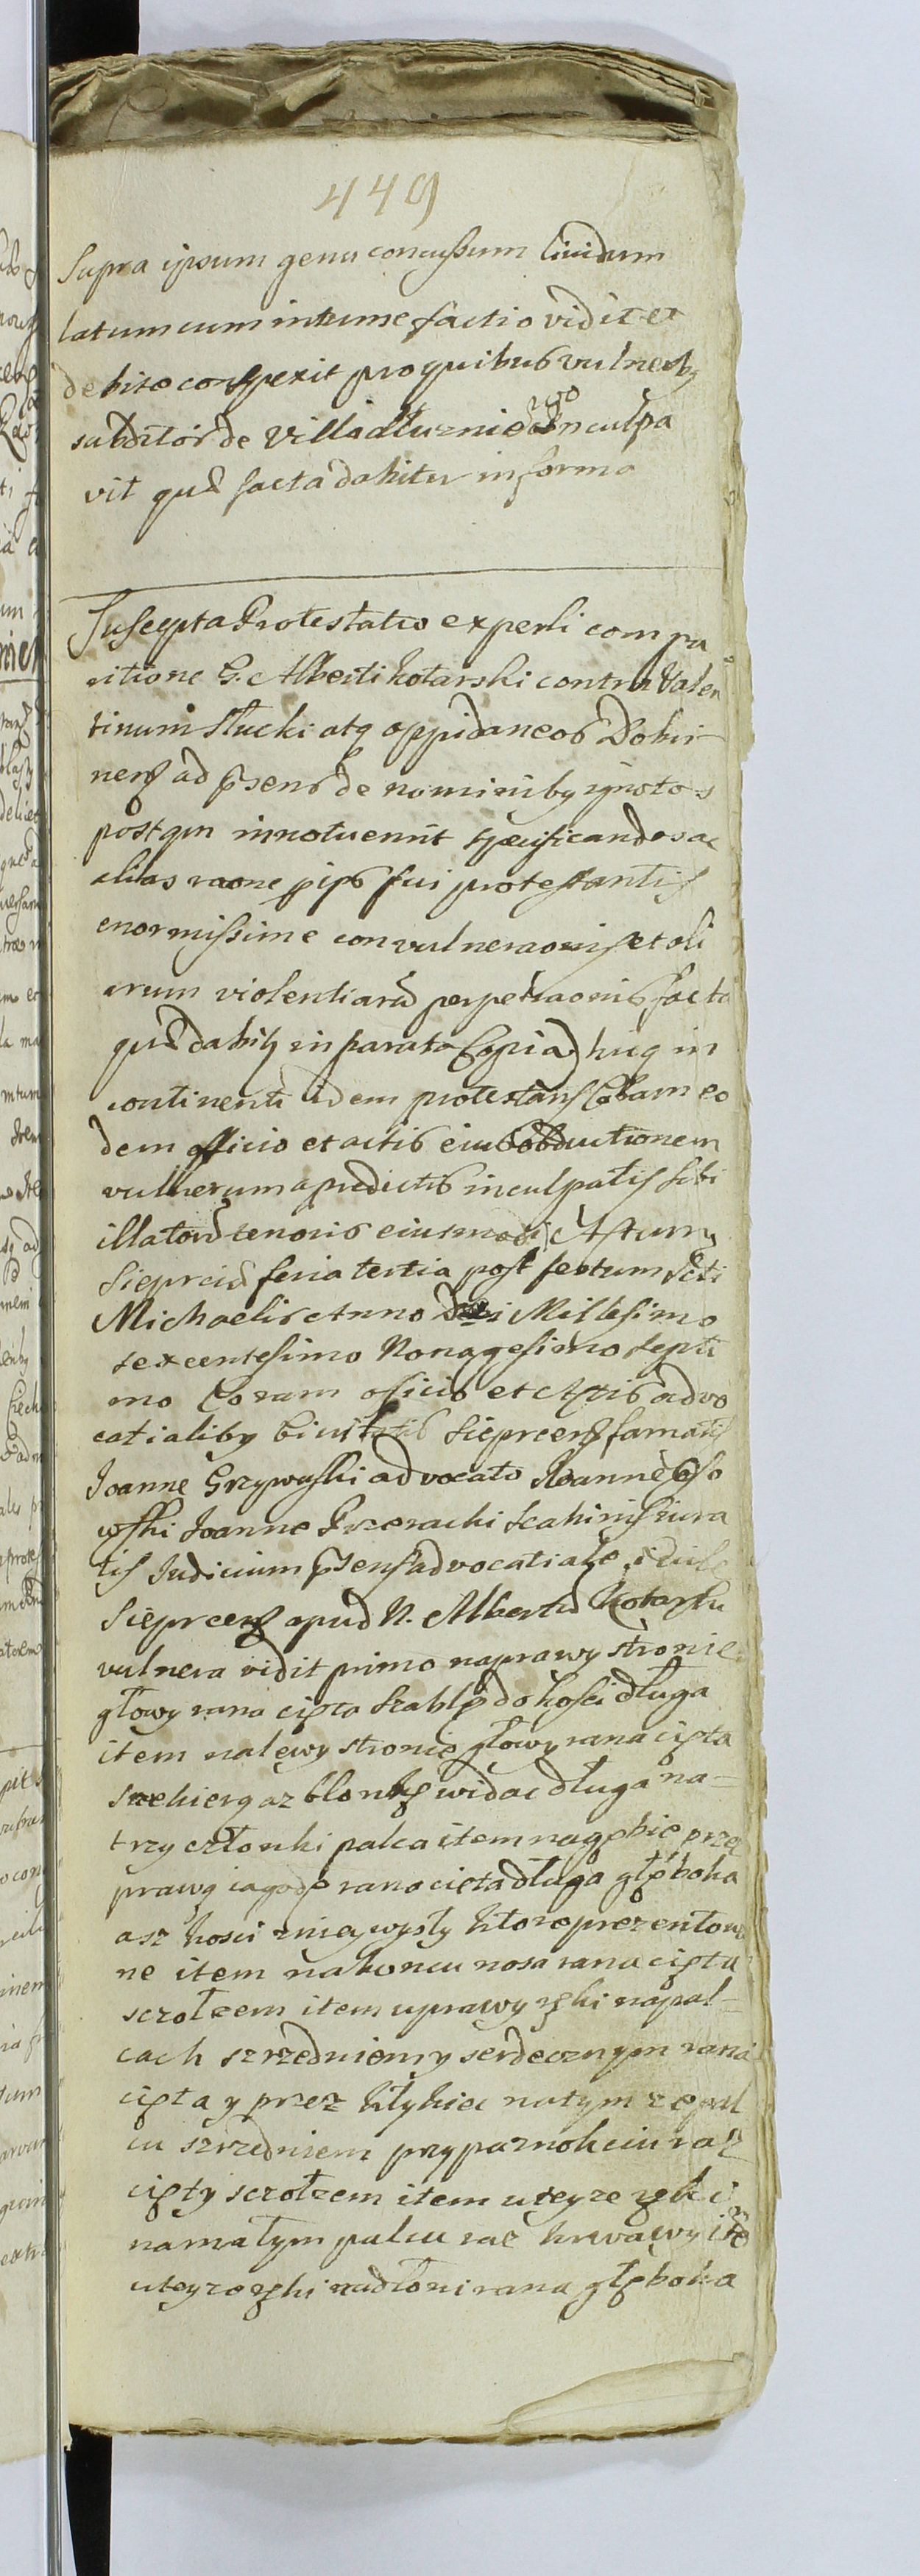 449
Supra ipsum genu concussum liuidum
latum cum intumefactio vidit et
debite conspexit pro quibus vulneriby
subditos de Villa dłuznie Inculpa
vit qud facta dabitur in forma
Suscepta Protestatio ex persli compa
ritione G. Alberti Kotarski contra Valen
tinum Słucki atq oppidaneos Dobri
nens ad psens de nominiby ignotos
postqm innotuerint specificandos ac
alias raone ipso sui protestantis
enormissime convulneraonis et ali
arum violentiaru perpetraonis facta
qud dabit in parata Copia) huq in
continenti idem protestans Coram eo
dem officio et actis eius obductionem
vulnerum a predictis inculpatis sibi
illatoru tenoris eiusmodi Actum
Sieprcii feria tertia post festum Scti
Michaelis Anno Dni Millesimo
sexcentesimo Nonagesimo septi
mo Coram oficio et Actis advo
catialiby Ciuitatis Sieprcens famatis
Joanne Grzywaski advocato Joanne Oso
wski Joanne Przeracki Scabinis iura
tis Judicium psens advocatiale Ciuile
Sieprcens apud N. Albertu Kotarski
vulnera vidit primo na prawy stronie
głowy rana cięta szablą do kości długa
item na lewy stronie głowy rana cięta
siekierą az blonkę widac długa na
trzy członki palca item na gębie przez
prawą iagodę rana cięta długa głęboka
asz kosci z niey wyszły ktore prezentowa
ne item na koncu nosa rana cięta
sczołzem item u prawy ręki na pal
cach szrzedniemy serdecznym rana
cięta y przez kłykiec na tym ze pal
cu szrzedniem przy paznokciu raz
cięty sczołzem item u teyze ręki
na małym palcu raz krwawy ite
u teyze ręki na dłoni rana głęboka